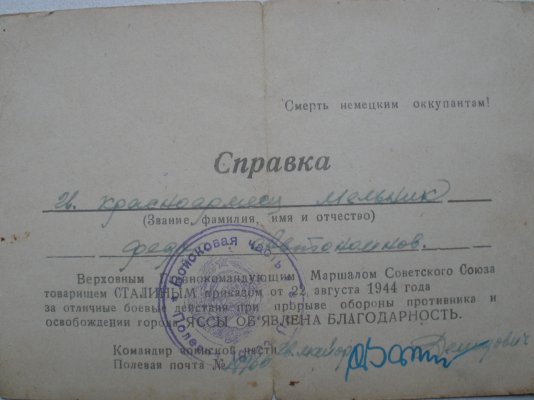 Смерть немецким оккупантам!
Справка
Гв. красноармеец Мельник
(Звание, фамилия, имя и отчество)
Верховным Главнокомандующим Маршалом Советского Союза
товарищем СТАЛИНЫМ приказом от 22 августа 1944 года
за отличные боевые действия при прорыве обороны противника и
освобождении города ЯССЫ ОБ'ЯВЛЕНА БЛАГОДАРНОСТЬ.
Командир воинской части Гв. майор
Полевая почта №
Войсковая часть